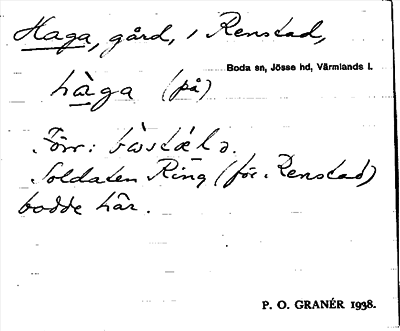 Haga, gård, i Renstad,
Boda sn, Jösse hd, Värmlands l.
hàga (på)
Förr: bòstǽlə.
Soldaten Ring (för Renstad)
bodde här.
P. O. GRANÉR 1938.